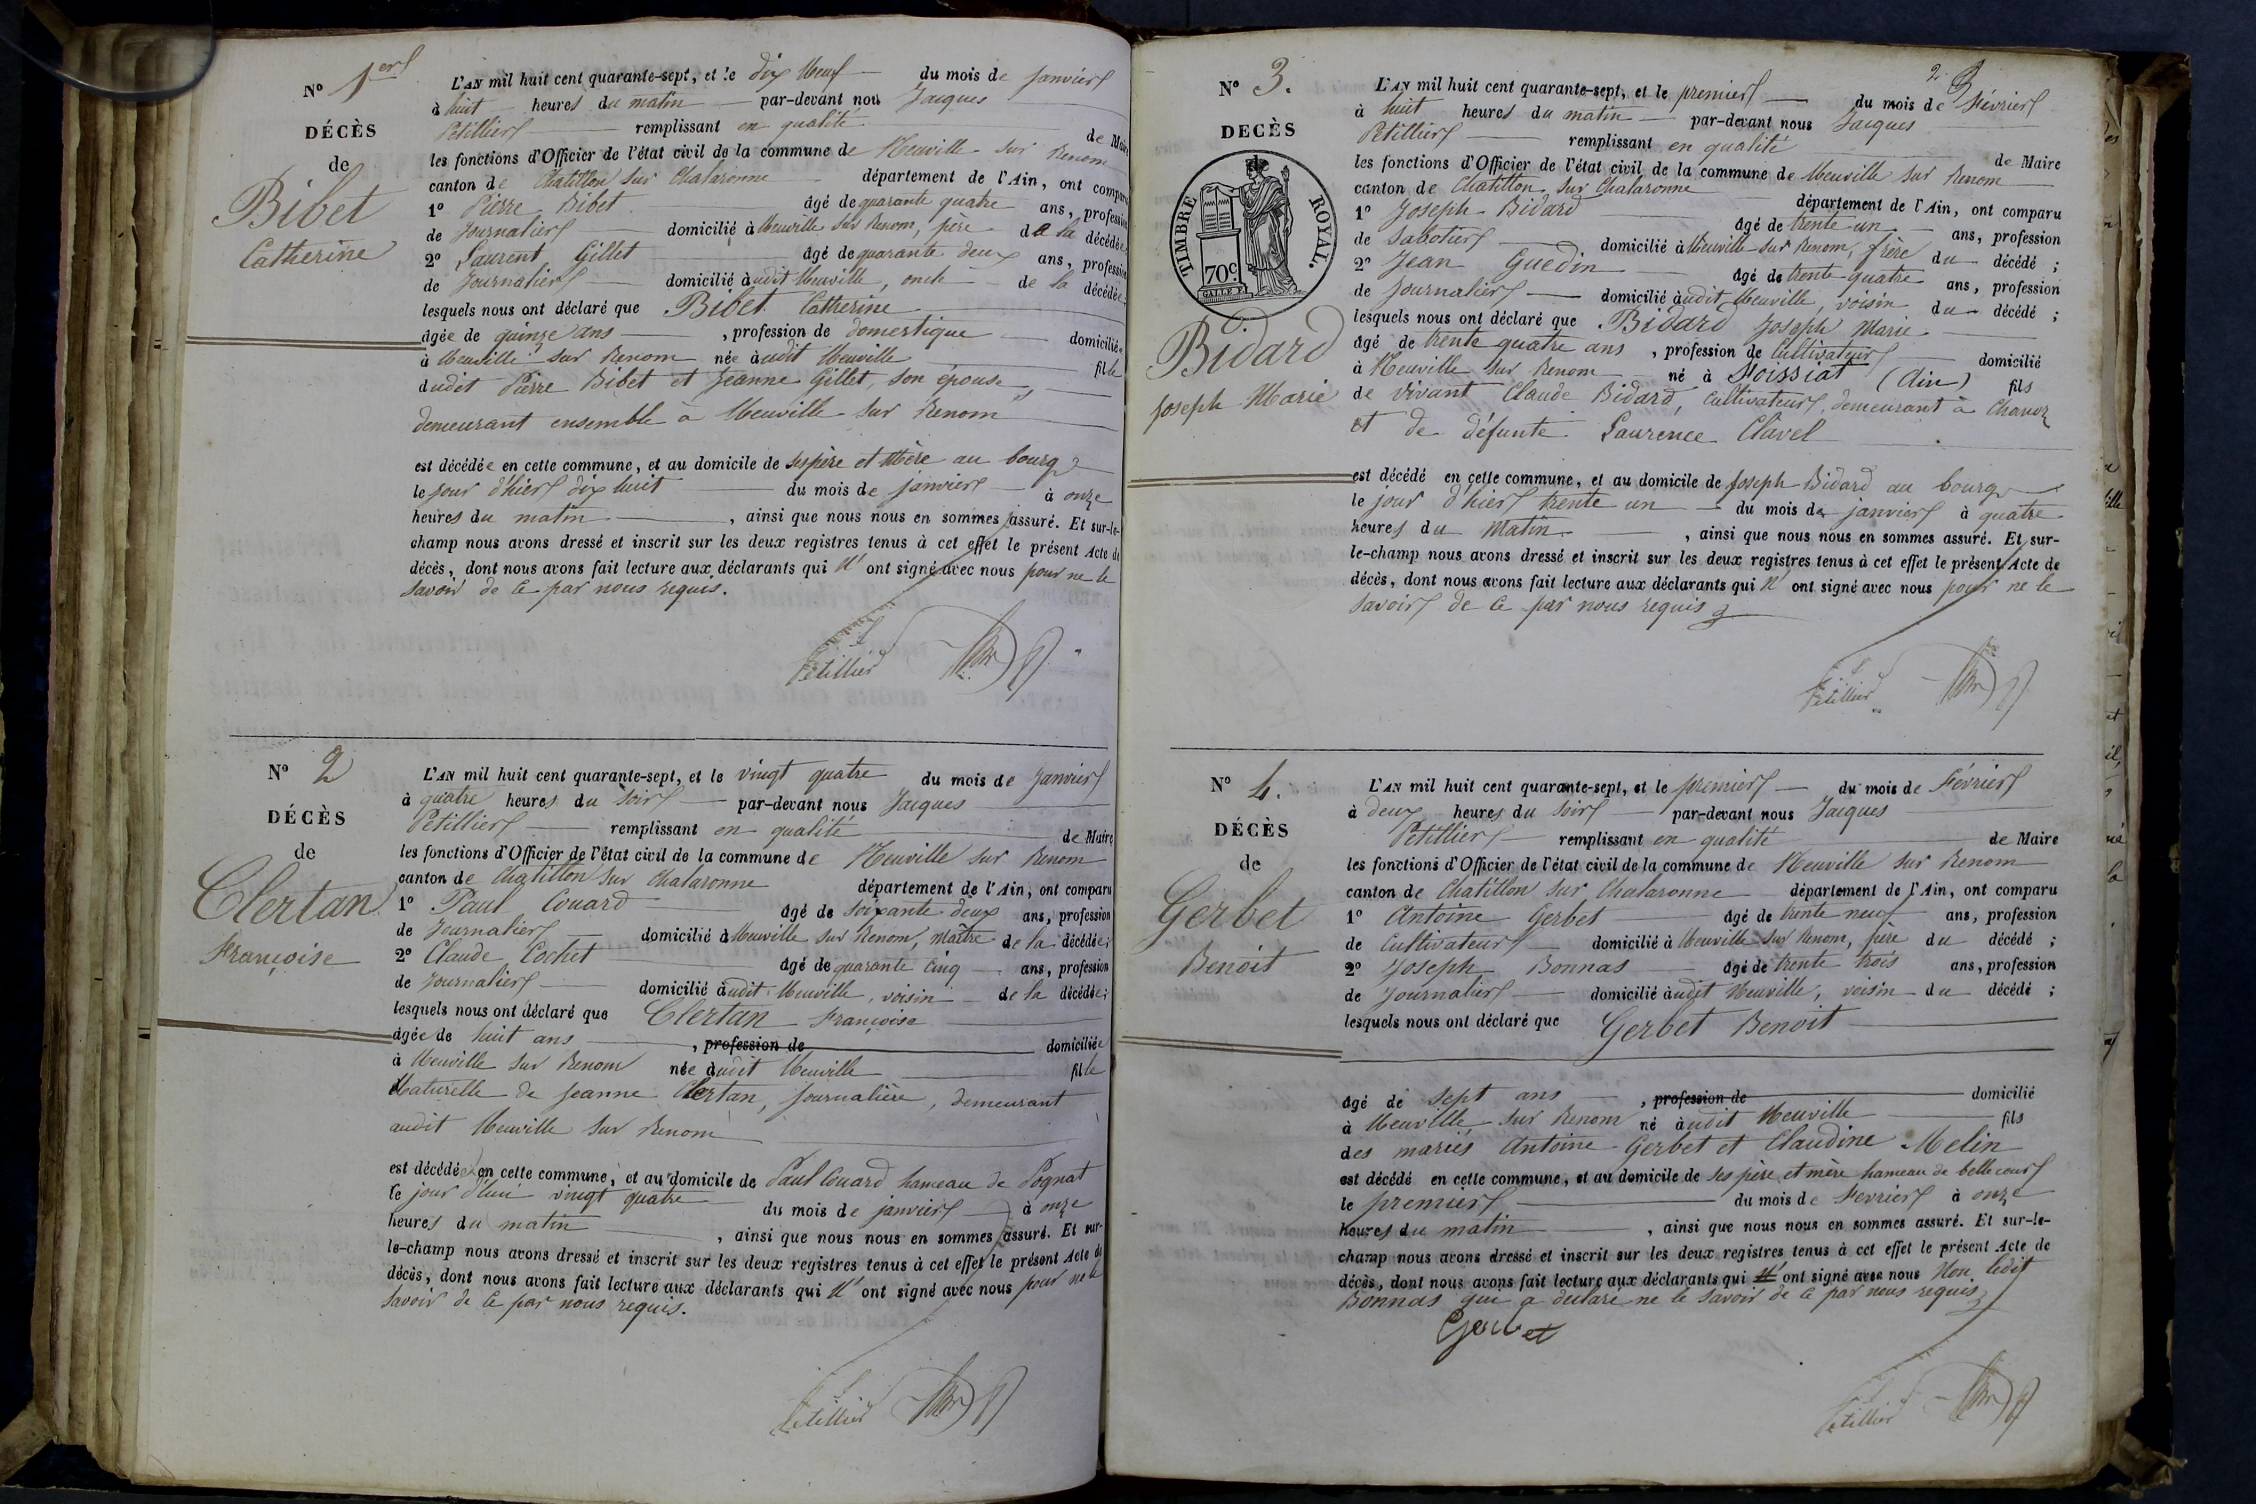 N° 1er
DÉCÈS
de
Bibet
Catherine
L'AN mil huit cent quarante-sept, et le dix Neuf du mois de Janvier
à huit heures du matin par-devant nou Jacques
Petillier remplissant en qualité de Mair
les fonctions d'Officier de l'état civil de la commune de Neuville sur Renom
canton de Chatillon sur Chalaronne département de l'Ain, ont compar
1° Pierre Bibet âgé de quarante quatre ans, profession
de Journalier domicilié à Neuville sur Renom, père de la décédée
2° Laurent Gillet âgé de quarante deux ans, profession
de Journalier domicilié audit Neuville, oncle de la décédée
lesquels nous ont déclaré que Bibet Catherine
âgée de quinze ans, profession de domestique domiciliée
à Neuville sur Renom née audit Neuville fille
dudit Pierre Bibet et Jeanne Gillet, son épouse,
demeurant ensemble à Neuville sur Renom
est décédée en cette commune, et au domicile de ses père et Mère au bourg
le jour d'hier dix huit du mois de janvier à onze
heures du matin, ainsi que nous nous en sommes assuré. Et sur-le-
champ nous avons dressé et inscrit sur les deux registres tenus à cet effet le présent Acte de
décès, dont nous avons fait lecture aux déclarants qui N' ont signé avec nous pour ne le
savoir de ce par nous requis.
Petillier
N° 2
DÉCÈS
de
Clertan
Françoise
L'AN mil huit cent quarante-sept, et le vingt quatre du mois de Janvier
à quatre heures du soir par-devant nous Jacques
Petillier remplissant en qualité de Maire
les fonctions d'Officier de l'état civil de la commune de Neuville sur Renom
canton de Chatillon sur Chalaronne département de l'Ain, ont comparu
1° Paul Couard âgé de soixante deux ans, profession
de Journalier domicilié à Neuville sur Renom, Maître de la décédée;
2° Claude Cochet âgé de quarante cinq ans, profession
de Journalier domicilié audit Neuville, voisin de la décédée;
lesquels nous ont déclaré que Clertan Françoise
âgée de huit ans, profession de domiciliée
à Neuville sur Renom née audit Neuville fille
Naturelle de Jeanne Clertan, journalière, demeurant
audit Neuville sur Renom
est décédée en cette commune, et au domicile de Paul Couard hameau de Pognat
le jour d'hui vingt quatre du mois de janvier à onze
heures du matin, ainsi que nous nous en sommes assuré. Et sur-
le-champ nous avons dressé et inscrit sur les deux registres tenus à cet effet le présent Acte de
décès, dont nous avons fait lecture aux déclarants qui N' ont signé avec nous pour ne le
savoir de ce par nous requis.
Petillier
N° 3.
DECÈS
de
TIMBRE ROYAL.
70c.
Bidard
Joseph Marie
L'AN mil huit cent quarante-sept, et le premier du mois de Février
à huit heures du matin par-devant nous Jacques
Petillier remplissant en qualité de Maire
les fonctions d'Officier de l'état civil de la commune de Neuville sur Renom
canton de Chatillon sur Chalaronne département de l'Ain, ont comparu
1° Joseph Bidard âgé de trente un ans, profession
de Sabotier domicilié à Neuville sur Renom, frère du décédé;
2° Jean Guedin âgé de trente quatre ans, profession
de Journalier domicilié audit Neuville, voisin du décédé;
lesquels nous ont déclaré que Bidard Joseph Marie
âgé de trente quatre ans, profession de Cultivateur domicilié
à Neuville sur Renom né à Foissiat (Ain) fils
de vivant Claude Bidard, cultivateur, demeurant à Chavoz
et de défunte Laurence Clavel
est décédé en cette commune, et au domicile de Joseph Bidard au bourg
le jour d'hier trente un du mois de janvier à quatre
heures du Matin, ainsi que nous nous en sommes assuré. Et sur-
le-champ nous avons dressé et inscrit sur les deux registres tenus à cet effet le présent Acte de
décès, dont nous avons fait lecture aux déclarants qui N' ont signé avec nous pour ne le
savoir de ce par nous requis
Petillier
N° 4.
DÉCÈS
de
Gerbet
Benoit
L'AN mil huit cent quarante-sept, et le premier du mois de Février
à deux heures du soir par-devant nous Jacques
Petillier remplissant en qualité de Maire
les fonctions d'Officier de l'état civil de la commune de Neuville sur Renom
canton de Chatillon sur Chalaronne département de l'Ain, ont comparu
1° Antoine Gerbet âgé de trente neuf ans, profession
de Cultivateur domicilié à Neuville sur Renom, père du décédé;
2° Joseph Bonnas âgé de trente trois ans, profession
de Journalier domicilié audit Neuville, voisin du décédé;
lesquels nous ont déclaré que Gerbet Benoit
âgé de sept ans, profession de domicilié
à Neuville sur Renom né audit Neuville fils
des mariés Antoine Gerbet et Claudine Melin
est décédé en cette commune, et au domicile de ses père et mère hameau de bellecour
le premier du mois de Fevrier à onze
heures du matin, ainsi que nous nous en sommes assuré. Et sur-le-
champ nous avons dressé et inscrit sur les deux registres tenus à cet effet le présent Acte de
décès, dont nous avons fait lecture aux déclarants qui N' ont signé avec nous Non ledit
Bonnas qui a déclaré ne le savoir de ce par nous requis
Gerbet
Petillier